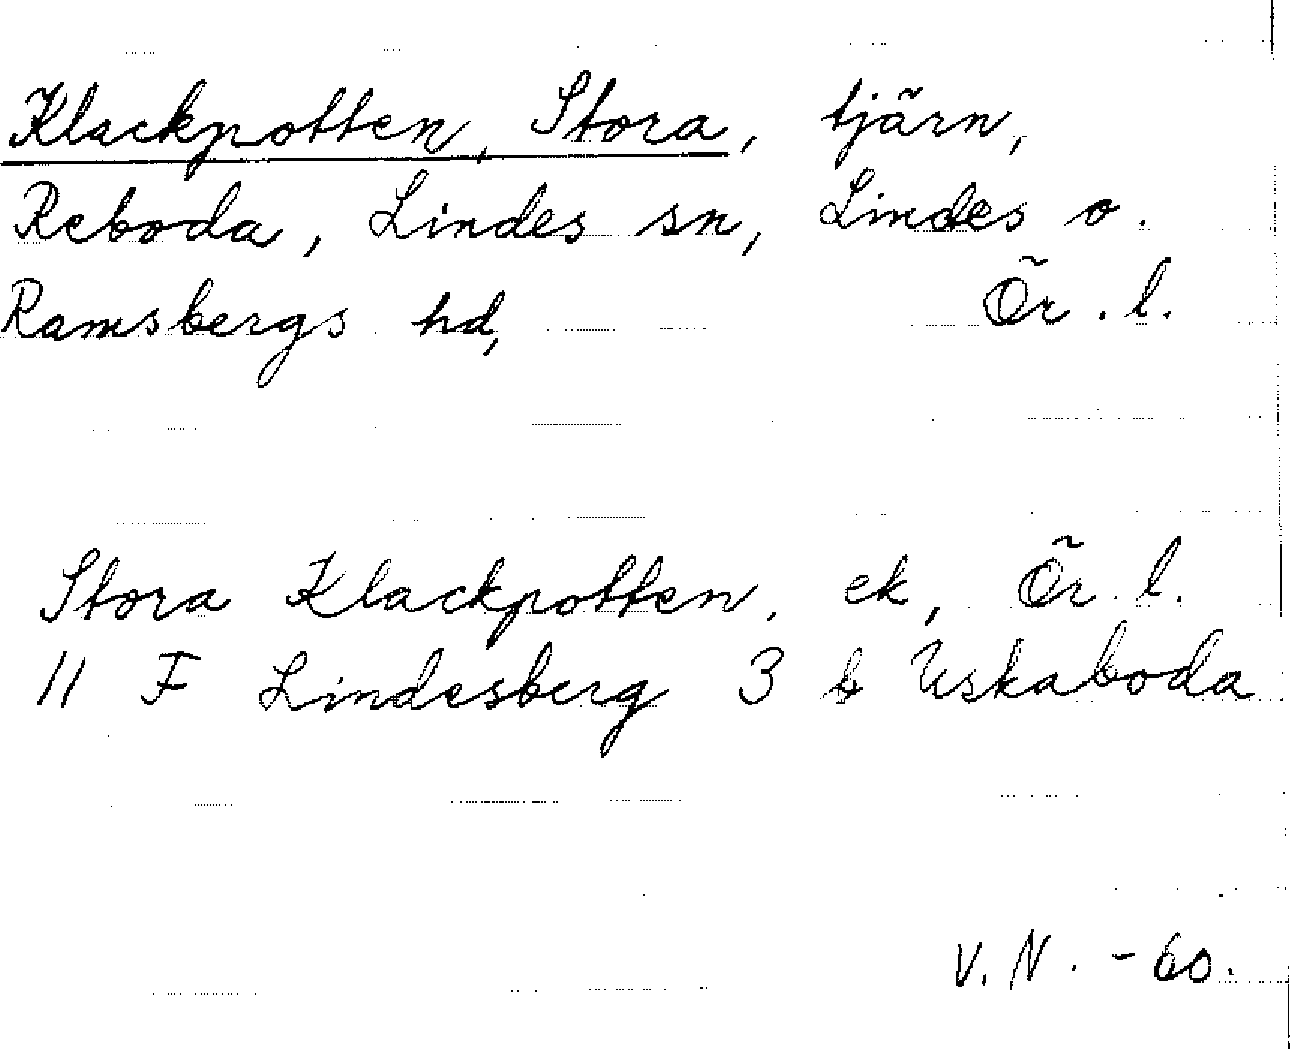 Klackpotten, Stora, tjärn,
Reboda, Lindes sn, Lindes o.
Ramsbergs hd, Ör. l.
Stora Klackpotten, ek, Ör. l.
11 F Lindesberg 3 b Uskaboda
V. N. -60.